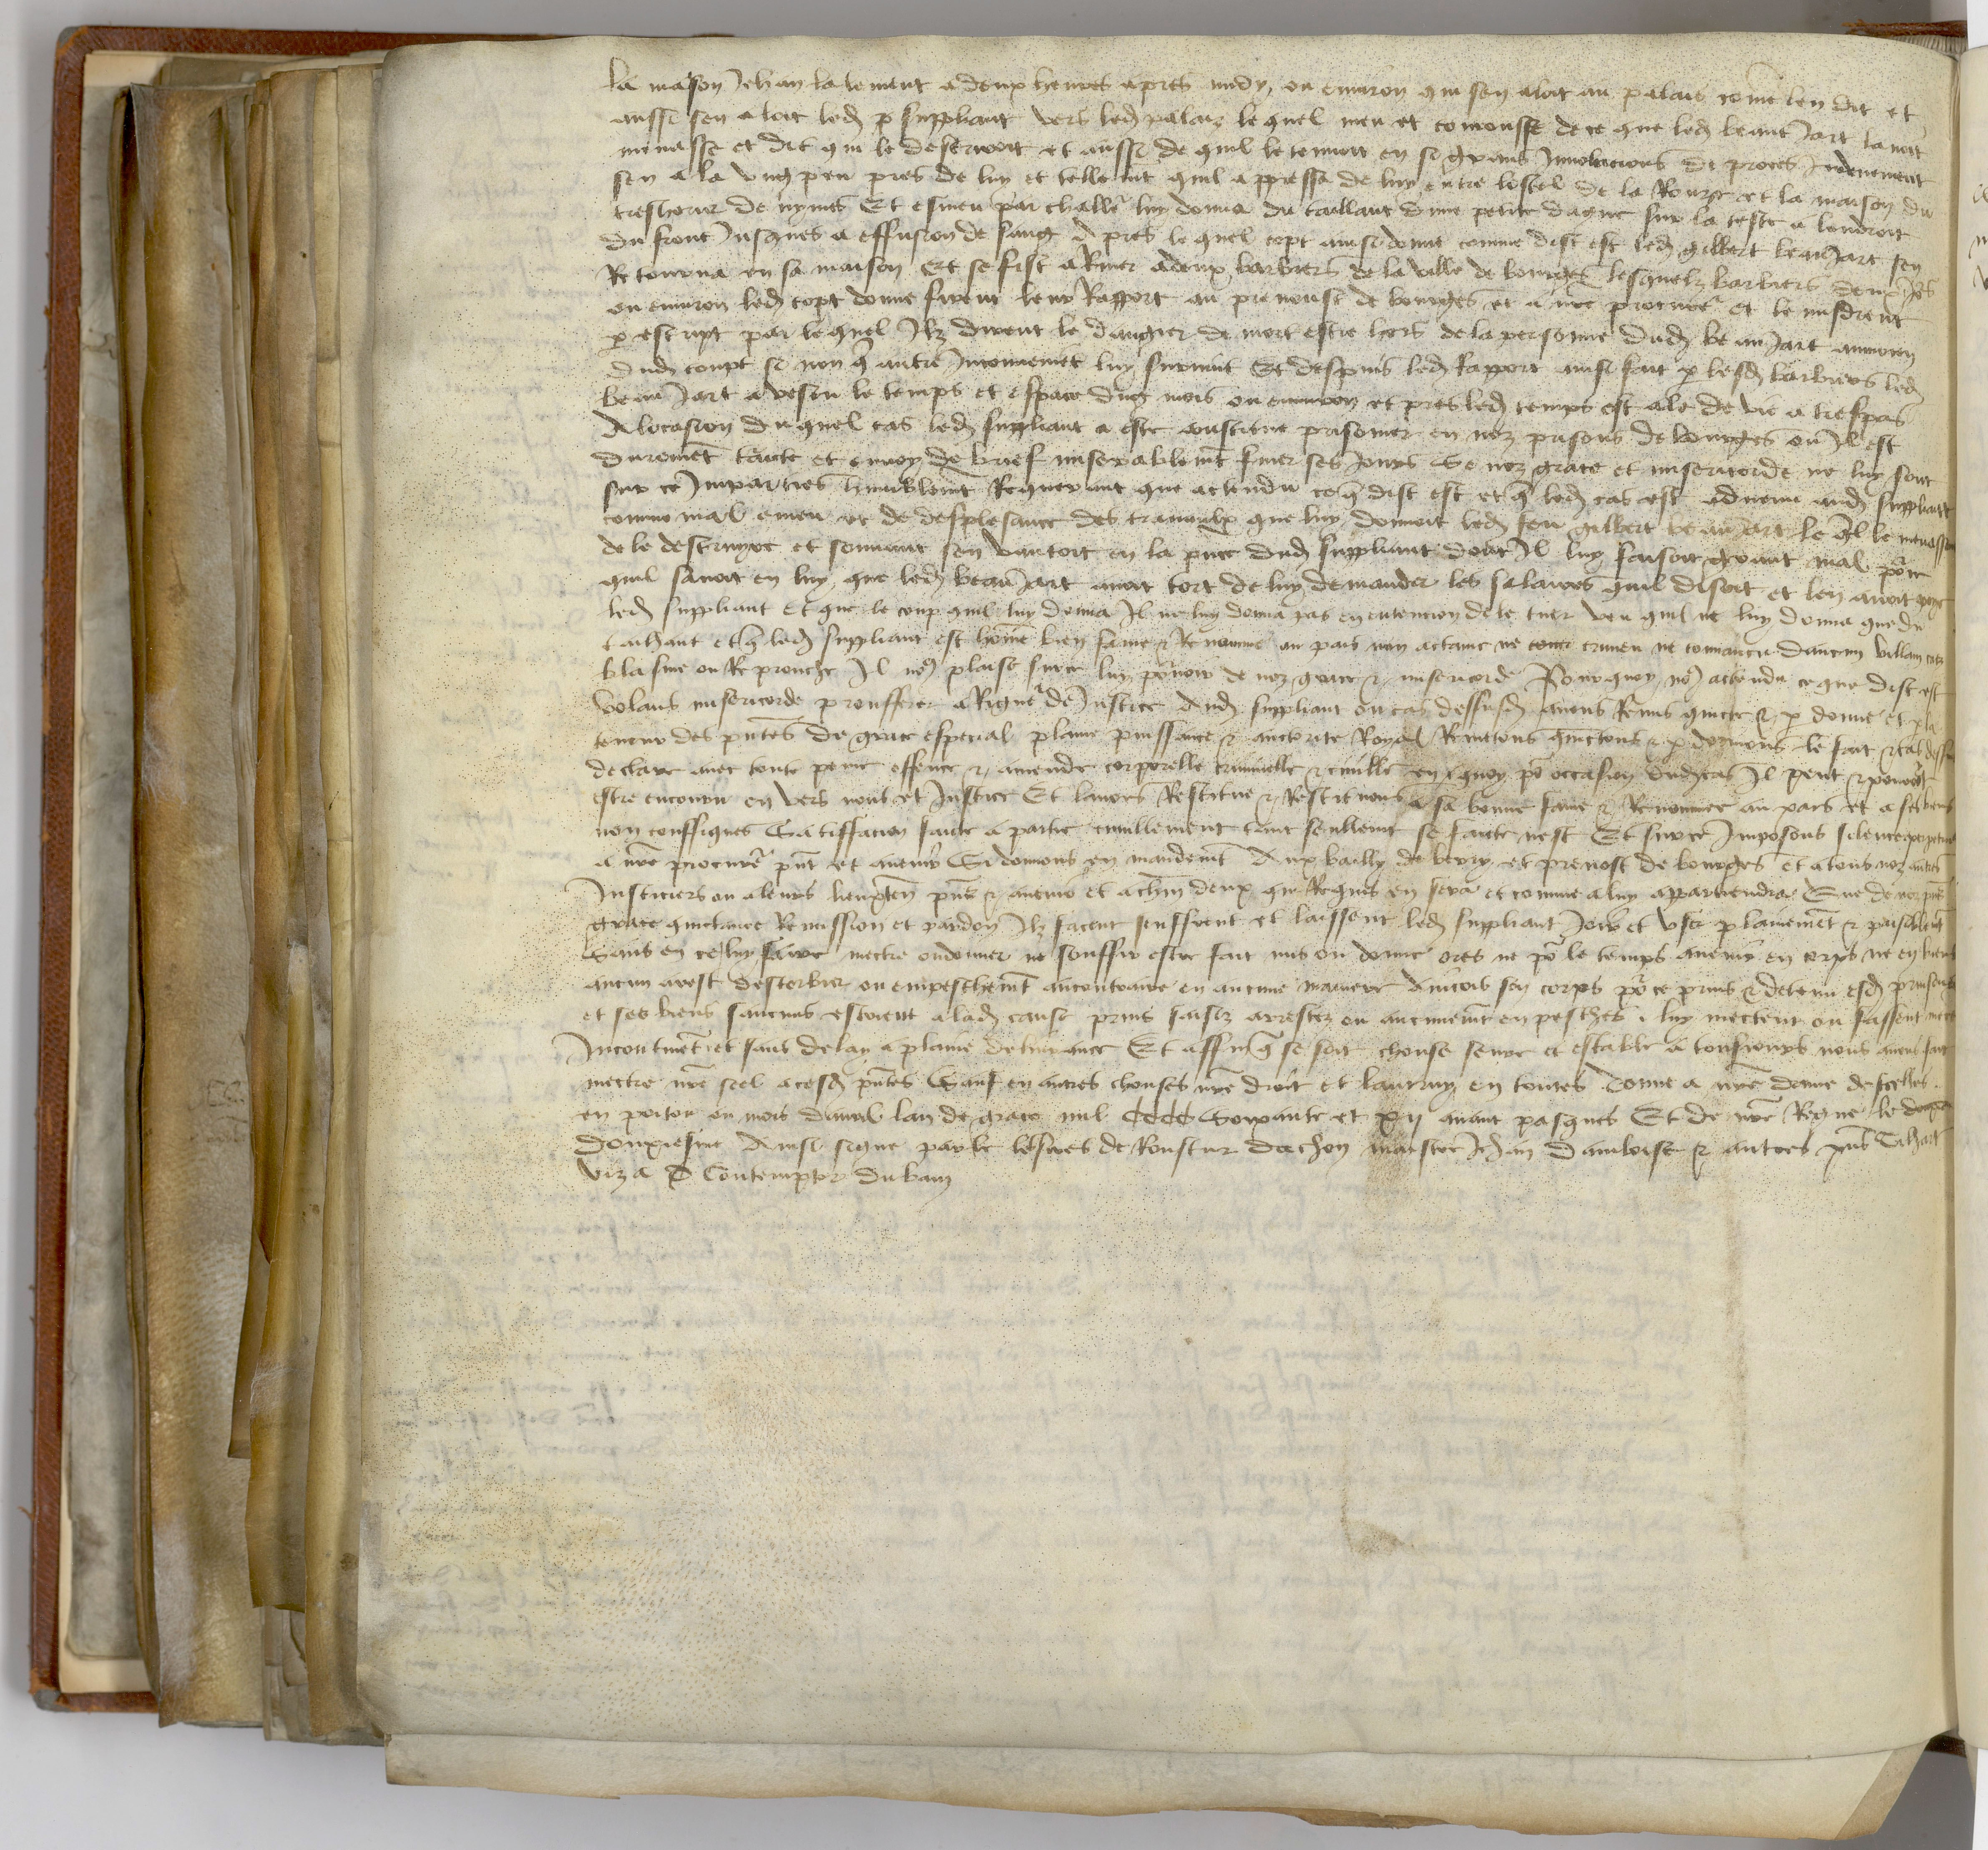 la maison Jehan lalement a deux heures apres midy ou environ qui sen aloit au palais come len dit et
aussi sen aloit led suppliant vers led palais lequel meu et comousse de ce que led beau Jart lavoit
menasse et dit qui le deserviroit et aussi de quil le tenoit en si grans Involucions de proces Induement
sen ala ung peu pres de luy et tellemt quil appressa de luy entre lostel de la Rourse et la maison du
tresorier de nymes Et esmeu par challeur luy donna du taillant dune petite dague sur la teste a lendroit
du front Jusques a effusion de sang Apres lequel copt ainsi donne comme dist est led gilbert beau Jart sen
Retourna en sa maison Et se fist abiller a deux barbiers de la ville de bourges lesquelz barbiers deux Jrs
ou environ led copt donne firent leur Rapport au prevoust de bourges et a nre procureur et le misdrent
p escript par lequel Ilz dirent le dangier de mort estre hors de la personne dud beau Jart au moien
dud coupt se non q autre Inconvenient luy survint Et despuis led Rapport ainsi fait p lesd barbiers led
beau Jart a vescu le temps et espace dung mois ou environ et pres led temps est ale de vie a trespas
A locasion du quel cas led suppliant a este constitue prisonnier en noz prisons de bourges ou Il est
durement traicte et en voy de brief miserablemt finer ses Jours Se noz grace et misericorde ne luy sont
sur ce Imparties humblemt Requerant que actendu ce q dist est et q led cas est advenu aud suppliant
comme mal emeu et de desplesance des travaulx que luy donnoit led feu gilbert beau Jart le ql le menassoit
de le destruyre et souvent sen vantoit en la pnce dud suppliant dont Il luy faisoit grant mal pour ce
quil savoit en luy que led beau Jart avoit tort de luy demander les salaires quil disoit et len avoit paye
led suppliant Et que le coup quil luy donna Il ne luy donna pas en entencion de le tuer veu quil ne luy donna que du
taillant et q led suppliant est home bien fame & Renomme au pais non actaint ne convaincu daucun villain cas
blasme ou Reprouche Il nous plaise sur ce luy pourvoir de noz grace & misericorde Pourquoy nous actendu ce que dist est
volans misericorde preufferer a Rigueur de Justice Aud suppliant ou cas dessusd avons Remis quicte & pdonne et p la
teneur des pntes de grace especial plaine puissance & auctorite Royal Remetons quictons & pdonnons le fait & cas dessus
declare avec toute peine offence & amende corporelle criminelle & civille en quoy po occasion dud cas Il peut & pourroit
estre encouru en vers nous et Justice Et lavons Restitue & Restituons a sa bonne fame & Renommee au pais et a ses biens
non confisques Satiffacion faicte a partie civillement tant seullemt se faicte nest Et sur ce Imposons silence perpetuel
a nre procureur pnt et avenir Si donnons en mandemt Aux bailly de berry et prevost de bourges et a tous noz autres
Justiciers ou a leurs lieuxten pns & avenir et a chun deulx qui Requis en sera et comme a luy appartiendra Que de noz pntes
grace quictance Remission et pardon Ilz facent seuffrent et laissent led suppliant Joir et user plainement & paisiblemt
Sans en ce luy faire mectre ou donner ne souffrir estre fait mis ou donne ores ne po le temps avenir en corps ne en biens
aucun arest destorbier ou empeschemt au contraire en aucune maniere Aincois son corps po ce prins & detenu esd prisons
et ses biens saucuns estoient a lad cause prins saisiz arrestez ou aucunemt enpesches luy mectent ou facent mectre
Incontinent et sans delay a plaine delivrance Et affin q se soit chouse ferme et estable a tousjours nous avons fait
mectre nre scel a cesd pntes Sauf en autres chouses nre droit et lautruy en toutes Donne a nre dame de scelles
en poitou ou mois davril lan de grace mil CCCC soixante et xij avant pasques Et de nre Regne le
douziesme Ainsi signe par le Roy les sires de dachon maistre Jehan damboise & autres pns
viza Contemptor duban